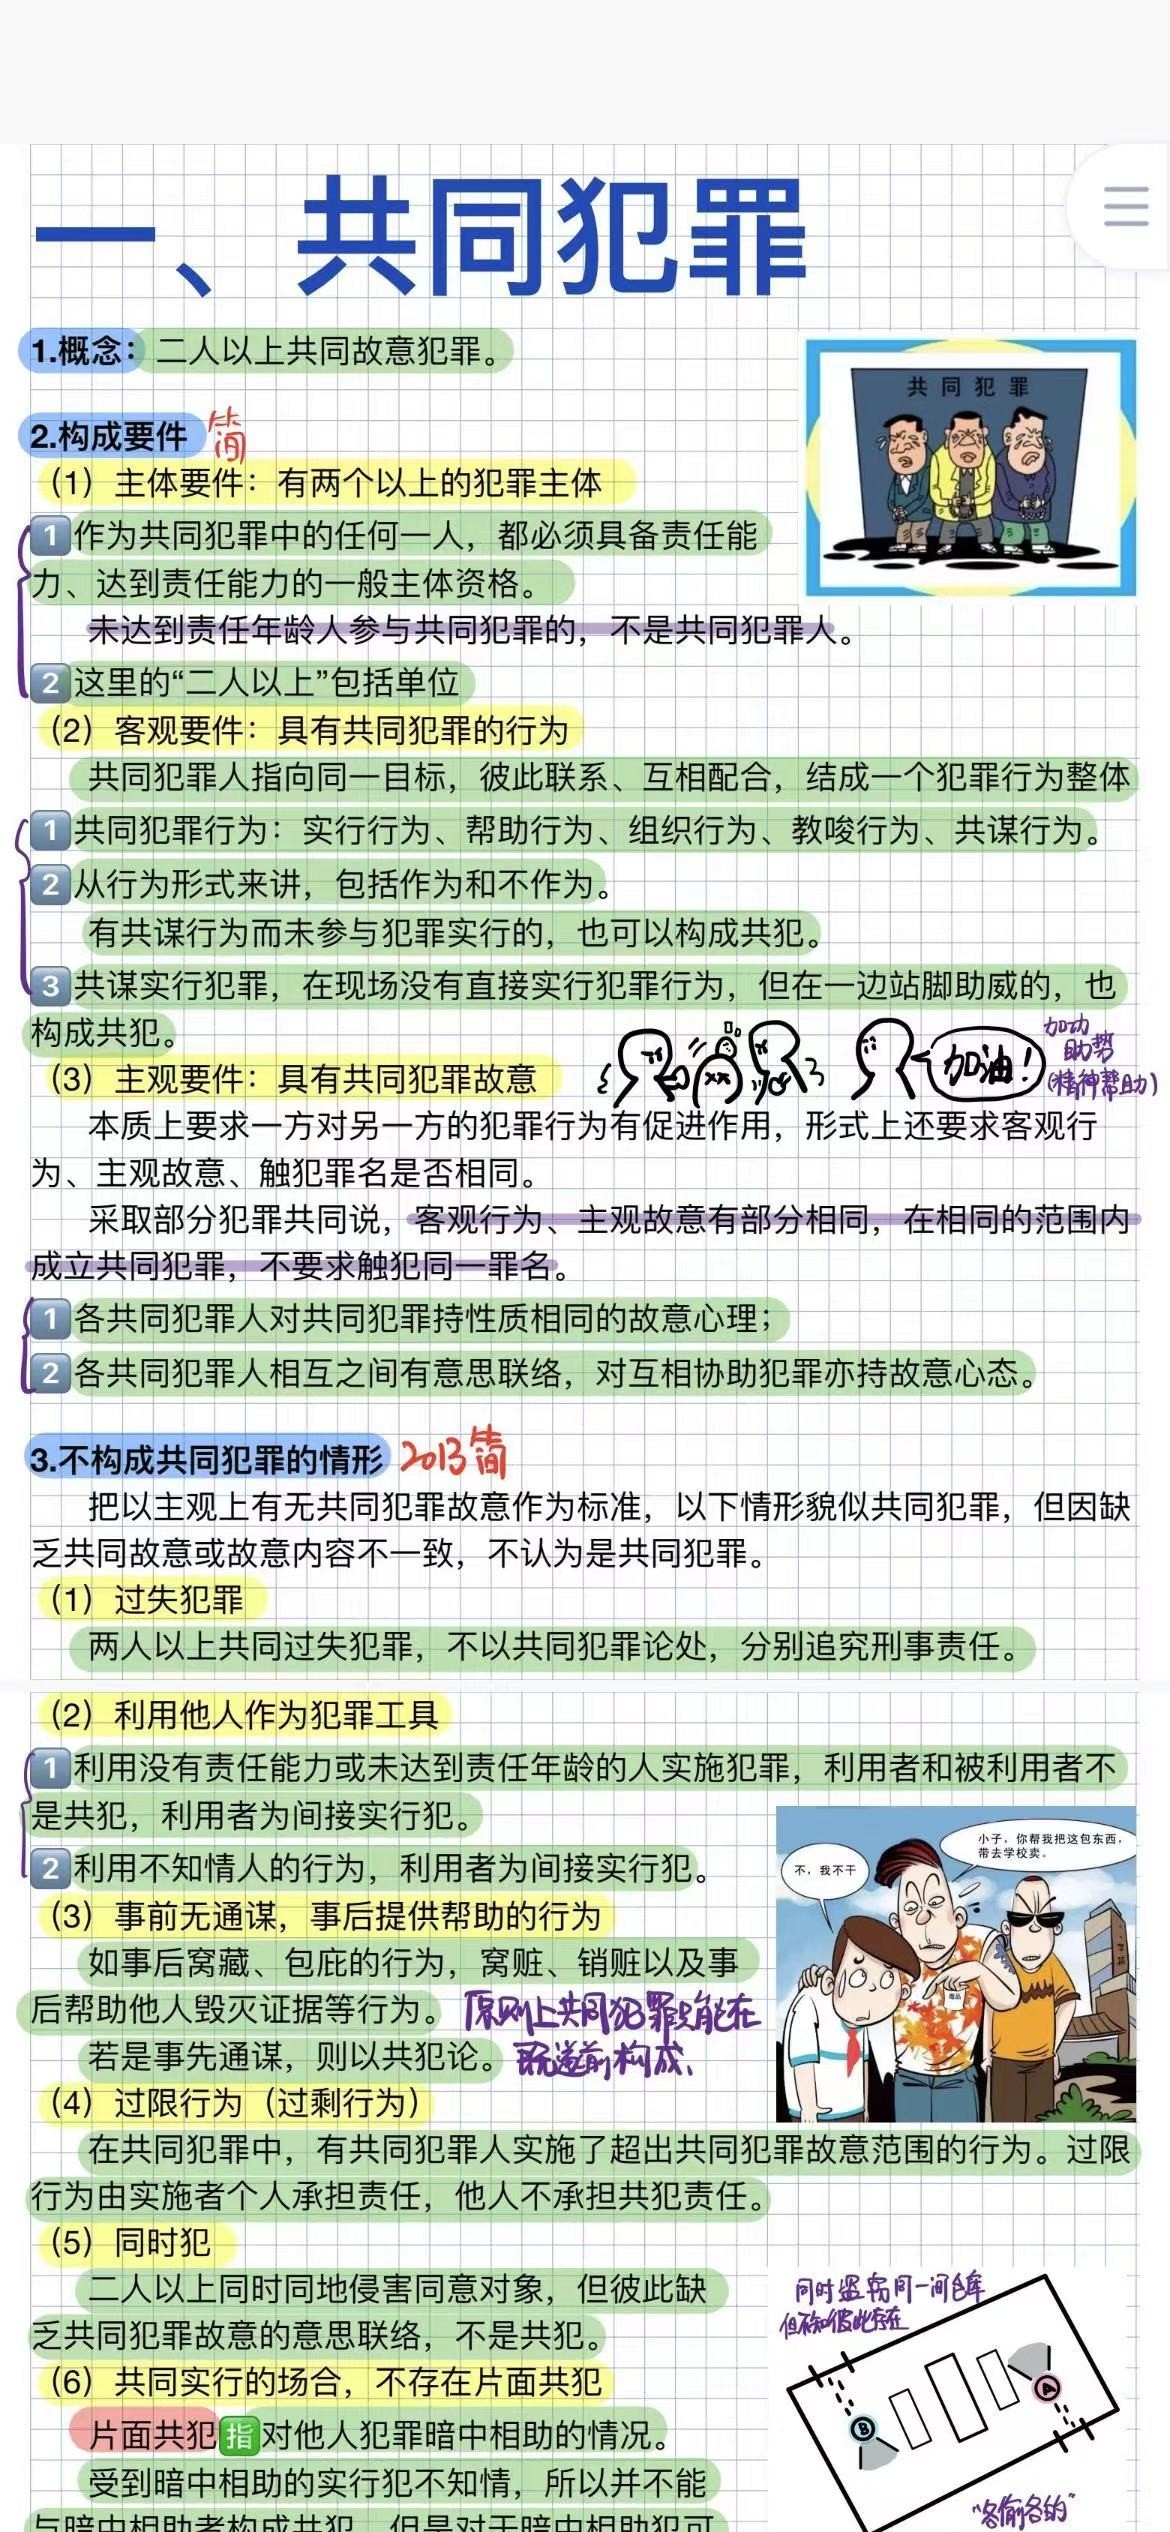 一、共同犯罪
1.概念：二人以上共同故意犯罪。
共同犯罪
2.构成要件 简
（1）主体要件：有两个以上的犯罪主体
1作为共同犯罪中的任何一人，都必须具备责任能
力、达到责任能力的一般主体资格。
未达到责任年龄人参与共同犯罪的，不是共同犯罪人。
2这里的“二人以上”包括单位
（2）客观要件：具有共同犯罪的行为
共同犯罪人指向同一目标，彼此联系、互相配合，结成一个犯罪行为整体
1共同犯罪行为：实行行为、帮助行为、组织行为、教唆行为、共谋行为。
2从行为形式来讲，包括作为和不作为。
有共谋行为而未参与犯罪实行的，也可以构成共犯。
3共谋实行犯罪，在现场没有直接实行犯罪行为，但在一边站脚助威的，也
构成共犯。
（3）主观要件：具有共同犯罪故意
加油！
加动
助势
（精神帮助）
本质上要求一方对另一方的犯罪行为有促进作用，形式上还要求客观行
为、主观故意、触犯罪名是否相同。
采取部分犯罪共同说，客观行为、主观故意有部分相同，在相同的范围内
成立共同犯罪，不要求触犯同一罪名。
1各共同犯罪人对共同犯罪持性质相同的故意心理；
2各共同犯罪人相互之间有意思联络，对互相协助犯罪亦持故意心态。
3.不构成共同犯罪的情形 2013简
把以主观上有无共同犯罪故意作为标准，以下情形貌似共同犯罪，但因缺
乏共同故意或故意内容不一致，不认为是共同犯罪。
（1）过失犯罪
两人以上共同过失犯罪，不以共同犯罪论处，分别追究刑事责任。
（2）利用他人作为犯罪工具
1利用没有责任能力或未达到责任年龄的人实施犯罪，利用者和被利用者不
是共犯，利用者为间接实行犯。
2利用不知情人的行为，利用者为间接实行犯。
小子，你帮我把这包东西，
带去学校卖。
不，我不干
毒品
（3）事前无通谋，事后提供帮助的行为
如事后窝藏、包庇的行为，窝赃、销赃以及事
后帮助他人毁灭证据等行为。
原则上共同犯罪只能在
既遂前构成、
若是事先通谋，则以共犯论。
（4）过限行为（过剩行为）
在共同犯罪中，有共同犯罪人实施了超出共同犯罪故意范围的行为。过限
行为由实施者个人承担责任，他人不承担共犯责任。
（5）同时犯
二人以上同时同地侵害同意对象，但彼此缺
乏共同犯罪故意的意思联络，不是共犯。
同时盗窃同一间仓库
但不知彼此存在
（6）共同实行的场合，不存在片面共犯
片面共犯指对他人犯罪暗中相助的情况。
A
B
受到暗中相助的实行犯不知情，所以并不能
“各偷各的”
与暗中相助者构成共犯。但是对于暗中相助犯可